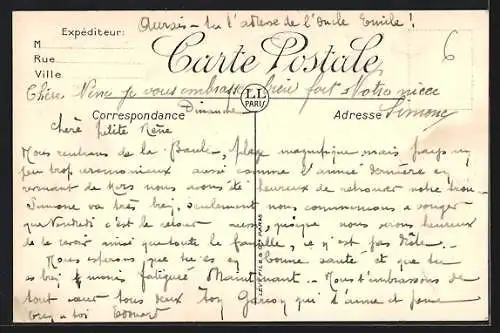 Aurais-tu l'adresse de l'Oncle Emile!
Expéditeur:
Carte Postale
M
Rue
Ville
6
Chère Nène je vous embrasse bien fort Votre nièce
Simone
LL
PARIS
Dimanche
Correspondance
Adresse
Chère petite Nène
Nous rentrons de la Baule, plage magnifique mais pays un
peu trop cérémonieux aussi comme l'année dernière en
revenant de nous avons été heureux de retrouver notre
Simone va très bien, seulement nous commençons a songer
que Vendredi c'est le retour aussi, puisque nous serons heureux
de te revoir ainsi que toute la famille, ce n'est pas drôle.
Nous espérons que tu es en bonne santé et que tu
es bien moins fatiguée Maintenant. Nous t'embrassons de
tout cœur tous deux Ton Garçon qui t'aime et pense
bien à toi Edouard
LEVY FILS & Cie PARIS